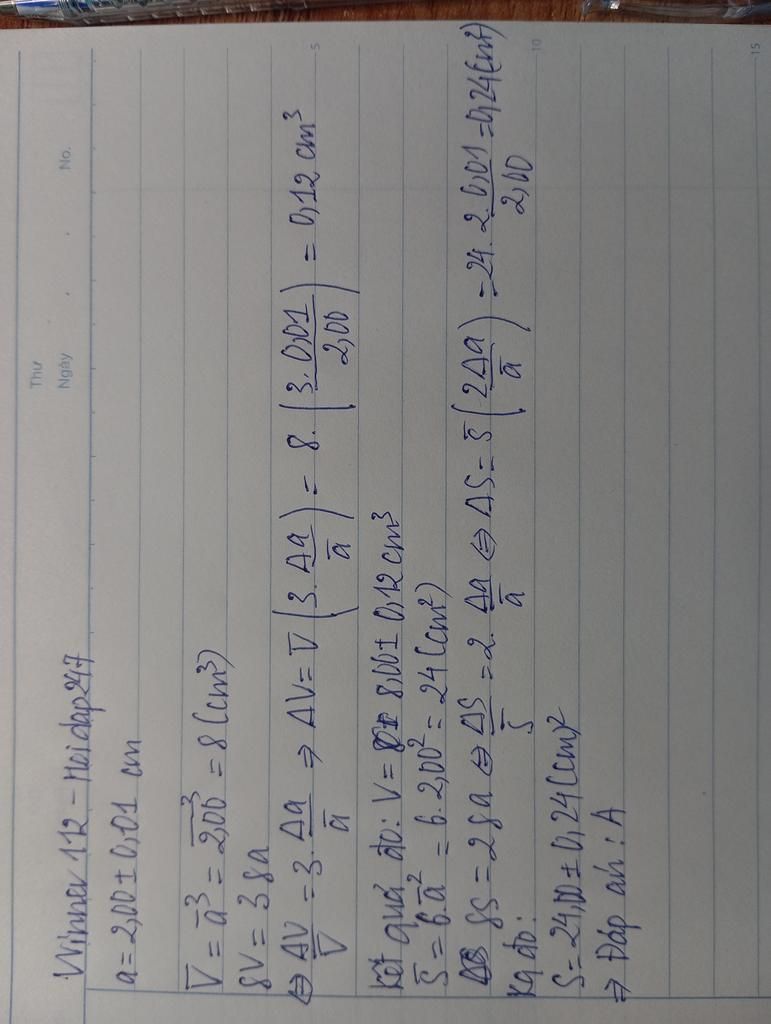 Thứ
Ngày
No.
Winner 112 - Hoidap247
a = 2,00 ± 0,01 cm
V̅ = a̅³ = 2,00³ = 8 (cm³)
δV = 3 δa
⇔ ΔV/V̅ = 3. Δa/a̅ ⇒ ΔV = V̅ (3. Δa/a̅) = 8. (3. 0,01/2,00) = 0,12 cm³
5
Kết quả đo: V = 8,00 ± 0,12 cm³
S̅ = 6.a̅² = 6. 2,00² = 24 (cm²)
δS = 2 δa ⇔ ΔS/S̅ = 2. Δa/a̅ ⇔ ΔS = S̅ (2Δa/a̅) = 24. 2. 0,01/2,00 = 0,24 (cm²)
Kq đo:
10
S = 24,00 ± 0,24 (cm²
⇒ Đáp án : A
15